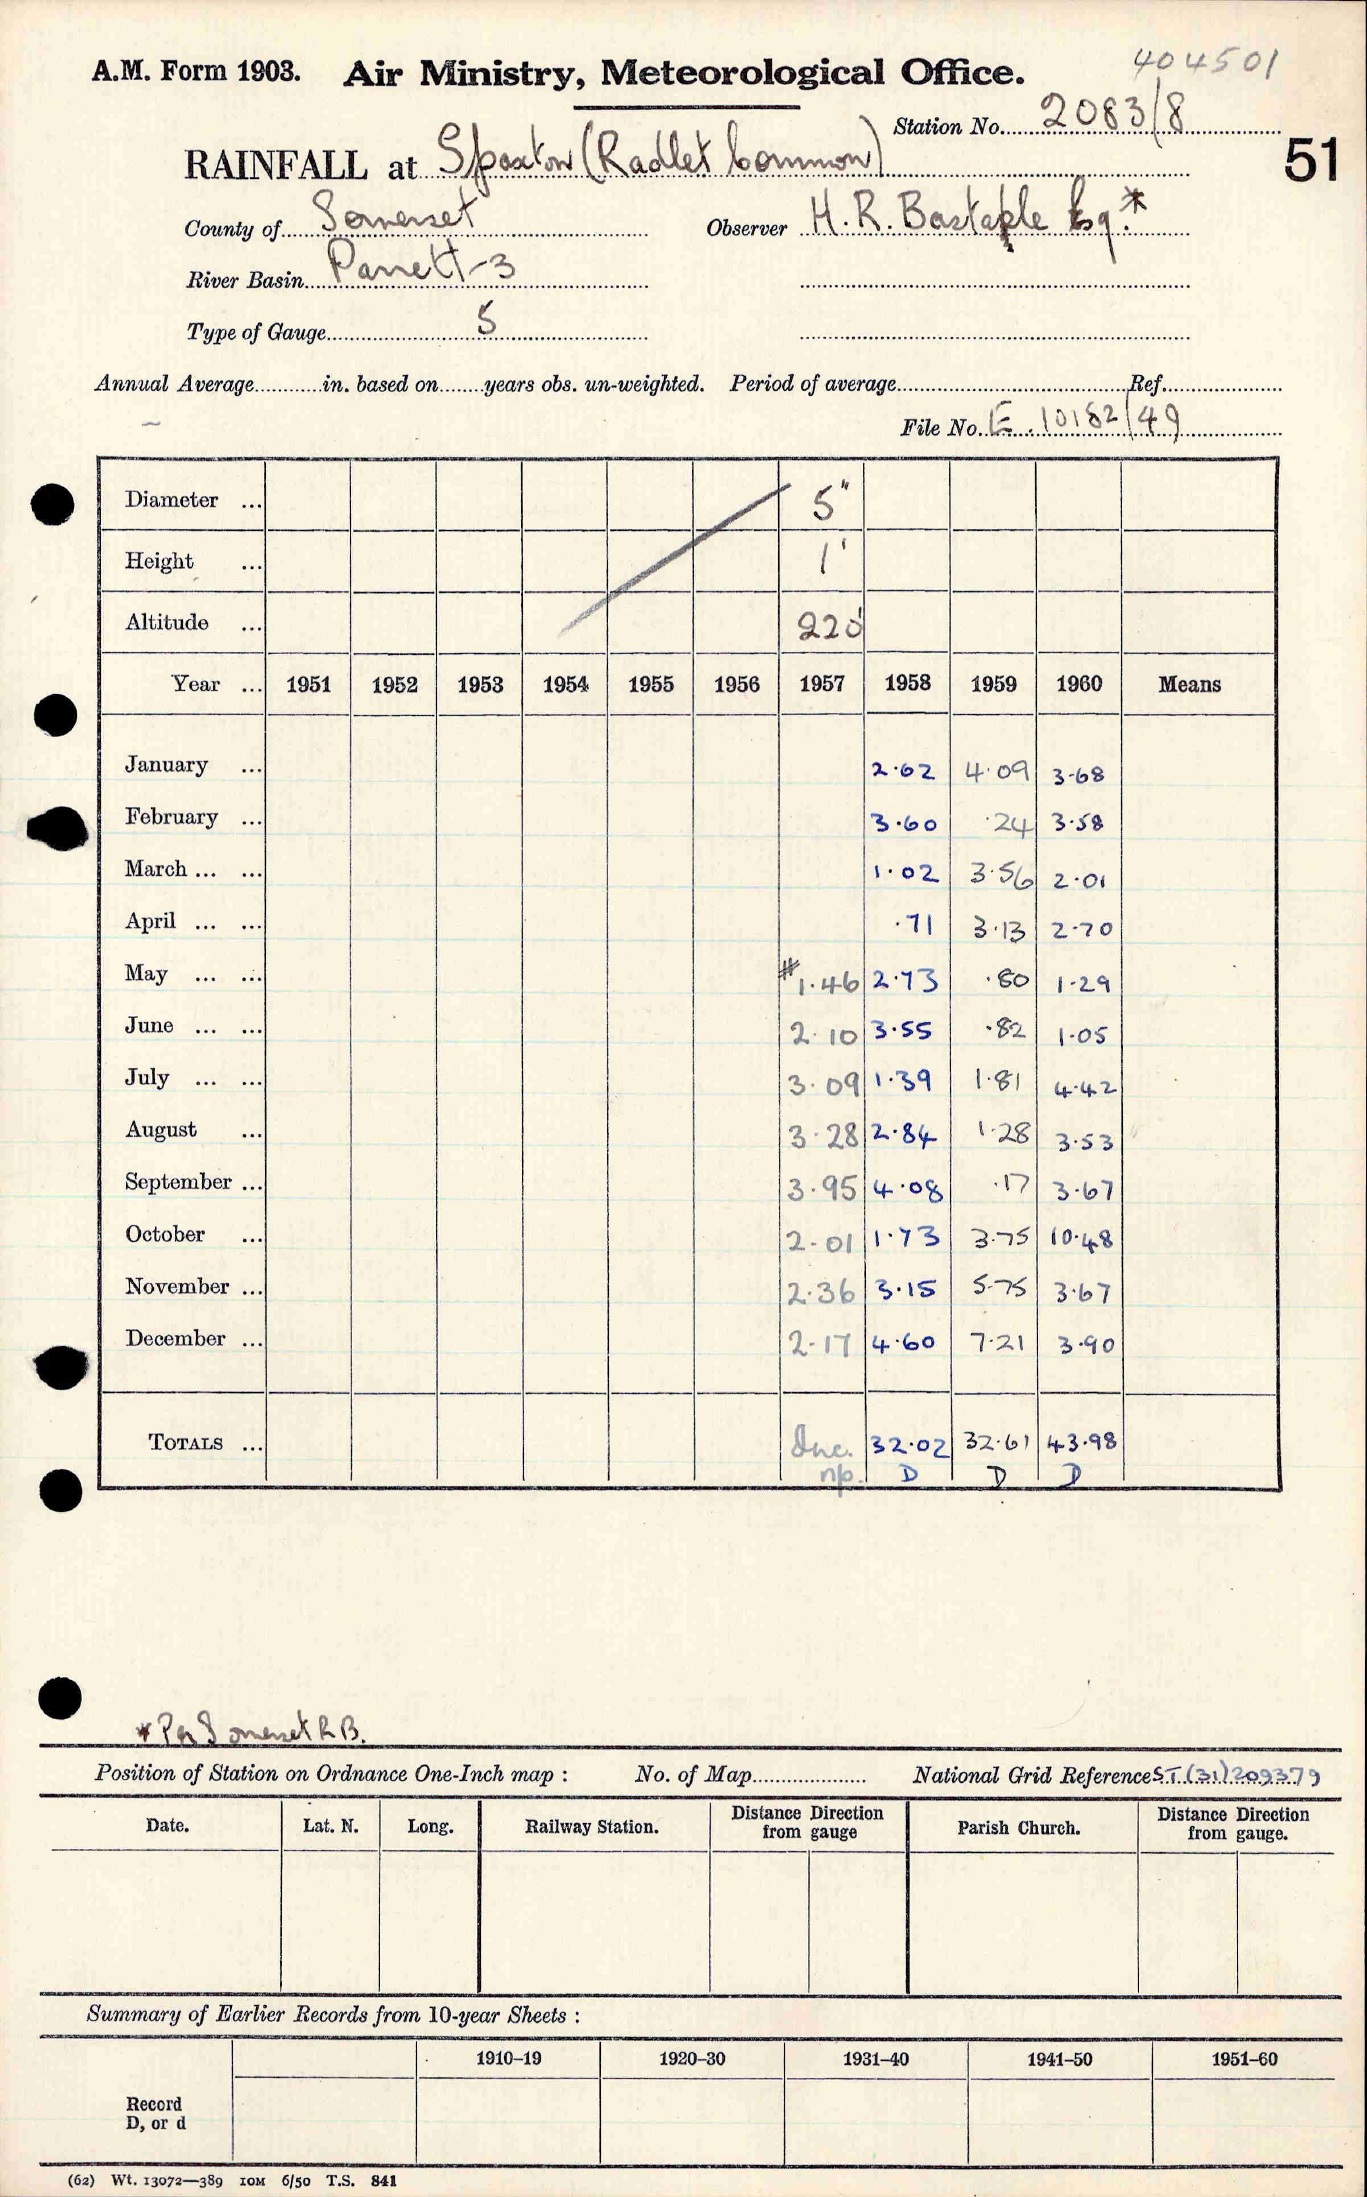 404501
A.M. Form 1903. Air Ministry, Meteorological Office.
Station No. 2083/8
51
RAINFALL at Spaxton (Radlet Common)
County of Somerset Observer H. R. Bastable Esq.*
River Basin Parrett-3
Type of Gauge 5
Annual Average in. based on years obs. un-weighted. Period of average Ref.
File No. E. 10182/49
Diameter ... 5"
Height ... 1'
Altitude ... 220'
Year ... 1951 1952 1953 1954 1955 1956 1957 1958 1959 1960 Means
January ... 2.62 4.09 3.68
February ... 3.60 .24 3.58
March ... ... 1.02 3.56 2.01
April ... ... .71 3.13 2.70
May ... ... #1.46 2.73 .80 1.29
June ... ... 2.10 3.55 .82 1.05
July ... ... 3.09 1.39 1.81 4.42
August ... 3.28 2.84 1.28 3.53
September ... 3.95 4.08 .17 3.67
October ... 2.01 1.73 3.75 10.48
November ... 2.36 3.15 5.75 3.67
December ... 2.17 4.60 7.21 3.90
TOTALS ... Inc. 32.02 32.61 43.98
n/p. D D D
* Per Somerset R.B.
Position of Station on Ordnance One-Inch map : No. of Map National Grid Reference ST (31) 209379
Date. Lat. N. Long. Railway Station. Distance Direction from gauge Parish Church. Distance Direction from gauge.
Summary of Earlier Records from 10-year Sheets :
1910–19 1920–30 1931–40 1941–50 1951–60
Record
D, or d
(62) Wt. 13072—389 10M 6/50 T.S. 841